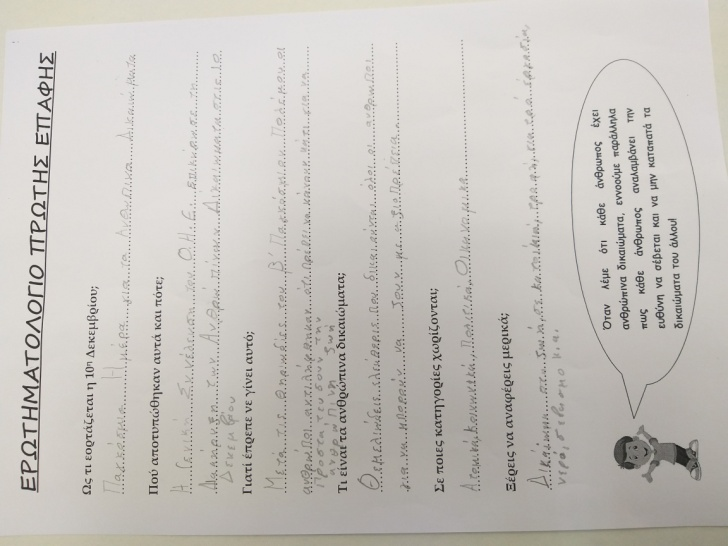 ΕΡΩΤΗΜΑΤΟΛΟΓΙΟ ΠΡΩΤΗΣ ΕΠΑΦΗΣ
Ως τι εορτάζεται η 10η Δεκεμβρίου;
Παγκόσμια Ημέρα για τα Ανθρώπινα Δικαιώματα
Πού αποτυπώθηκαν αυτά και πότε;
Η Γενική Συνέλευση του Ο.Η.Ε. επικύρωσε τη
των Ανθρωπίνων Δικαιωμάτων στις 10
Δεκεμβρίου
Γιατί έπρεπε νε γίνει αυτό;
Μετά τις θηριωδίες του Β' Παγκόσμιου Πολέμου οι
άνθρωποι αντιλήφθηκαν ότι πρέπει να κάνουν κάτι για να
προστατεύσουν την
ανθρώπινη ζωή
Τι είναι τα ανθρώπινα δικαιώματα;
Θεμελιώδεις ελευθερίες που δικαιούνται όλοι οι άνθρωποι
για να μπορούν να ζουν με αξιοπρέπεια.
Σε ποιες κατηγορίες χωρίζονται;
Ατομικά, Κοινωνικά, Πολιτικά, Οικονομικά
Ξέρεις να αναφέρεις μερικά;
Δικαίωμα στη ζωή, σε κατοικία, τροφή, γιατρό, εργασία,
νερό, σεβασμό κ.α.
Όταν λέμε ότι κάθε άνθρωπος έχει
ανθρώπινα δικαιώματα, εννοούμε παράλληλα
πως κάθε άνθρωπος αναλαμβάνει την
ευθύνη να σέβεται και να μην καταπατά τα
δικαιώματα του άλλου!